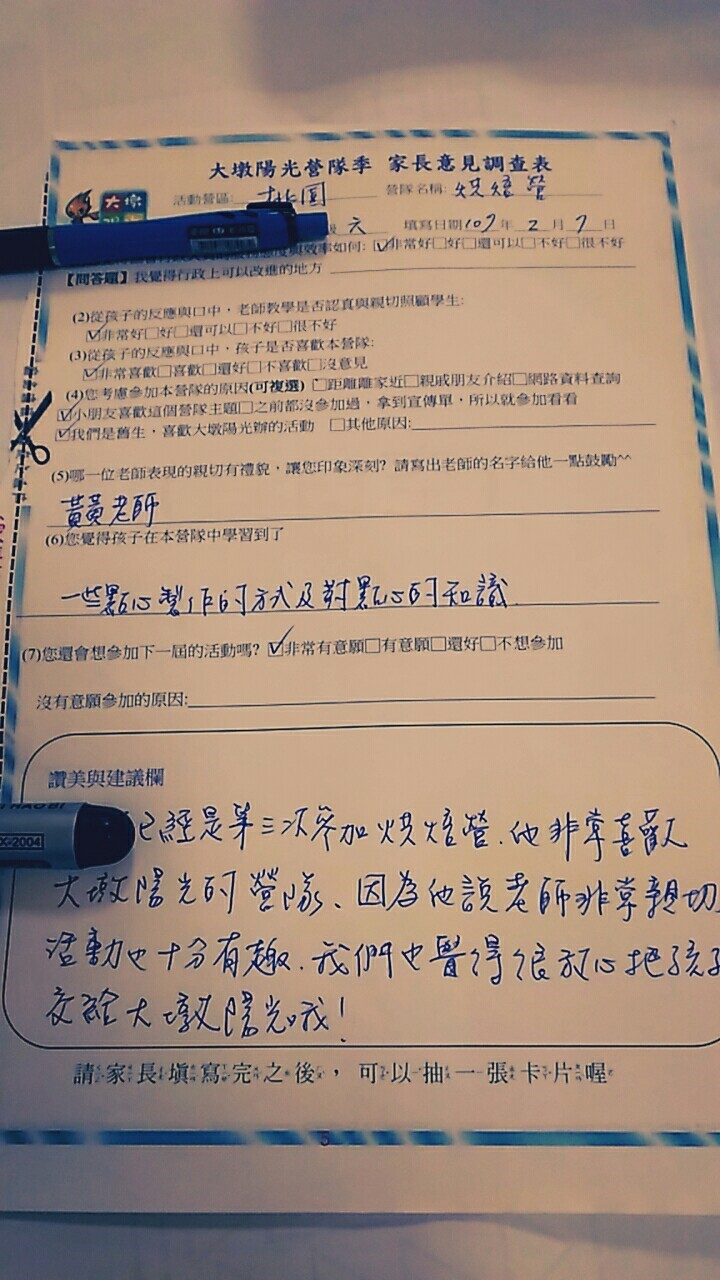 大墩陽光營隊季 家長意見調查表
大墩
活動營區: 桃園 營隊名稱: 烘焙營
級 六 填寫日期107年 2 月 7 日
務態度與效率如何: ☑非常好□好□還可以□不好□很不好
【問答題】我覺得行政上可以改進的地方
(2)從孩子的反應與口中，老師教學是否認真與親切照顧學生:
☑非常好□好□還可以□不好□很不好
(3)從孩子的反應與口中，孩子是否喜歡本營隊:
☑非常喜歡□喜歡□還好□不喜歡□沒意見
(4)您考慮參加本營隊的原因(可複選) □距離離家近□親戚朋友介紹□網路資料查詢
☑小朋友喜歡這個營隊主題□之前都沒參加過，拿到宣傳單，所以就參加看看
☑我們是舊生，喜歡大墩陽光辦的活動 □其他原因:
(5)哪一位老師表現的親切有禮貌，讓您印象深刻? 請寫出老師的名字給他一點鼓勵^^
黃黃老師
(6)您覺得孩子在本營隊中學習到了
一些點心製作的方式及對點心的知識
(7)您還會想參加下一屆的活動嗎? ☑非常有意願□有意願□還好□不想參加
沒有意願參加的原因:
讚美與建議欄
X-2004
已經是第三次參加烘焙營、他非常喜歡
大墩陽光的營隊、因為他說老師非常親切
活動也十分有趣、我們也覺得很放心把孩子
交給大墩陽光哦!
請家長填寫完之後，可以抽一張卡片喔
5